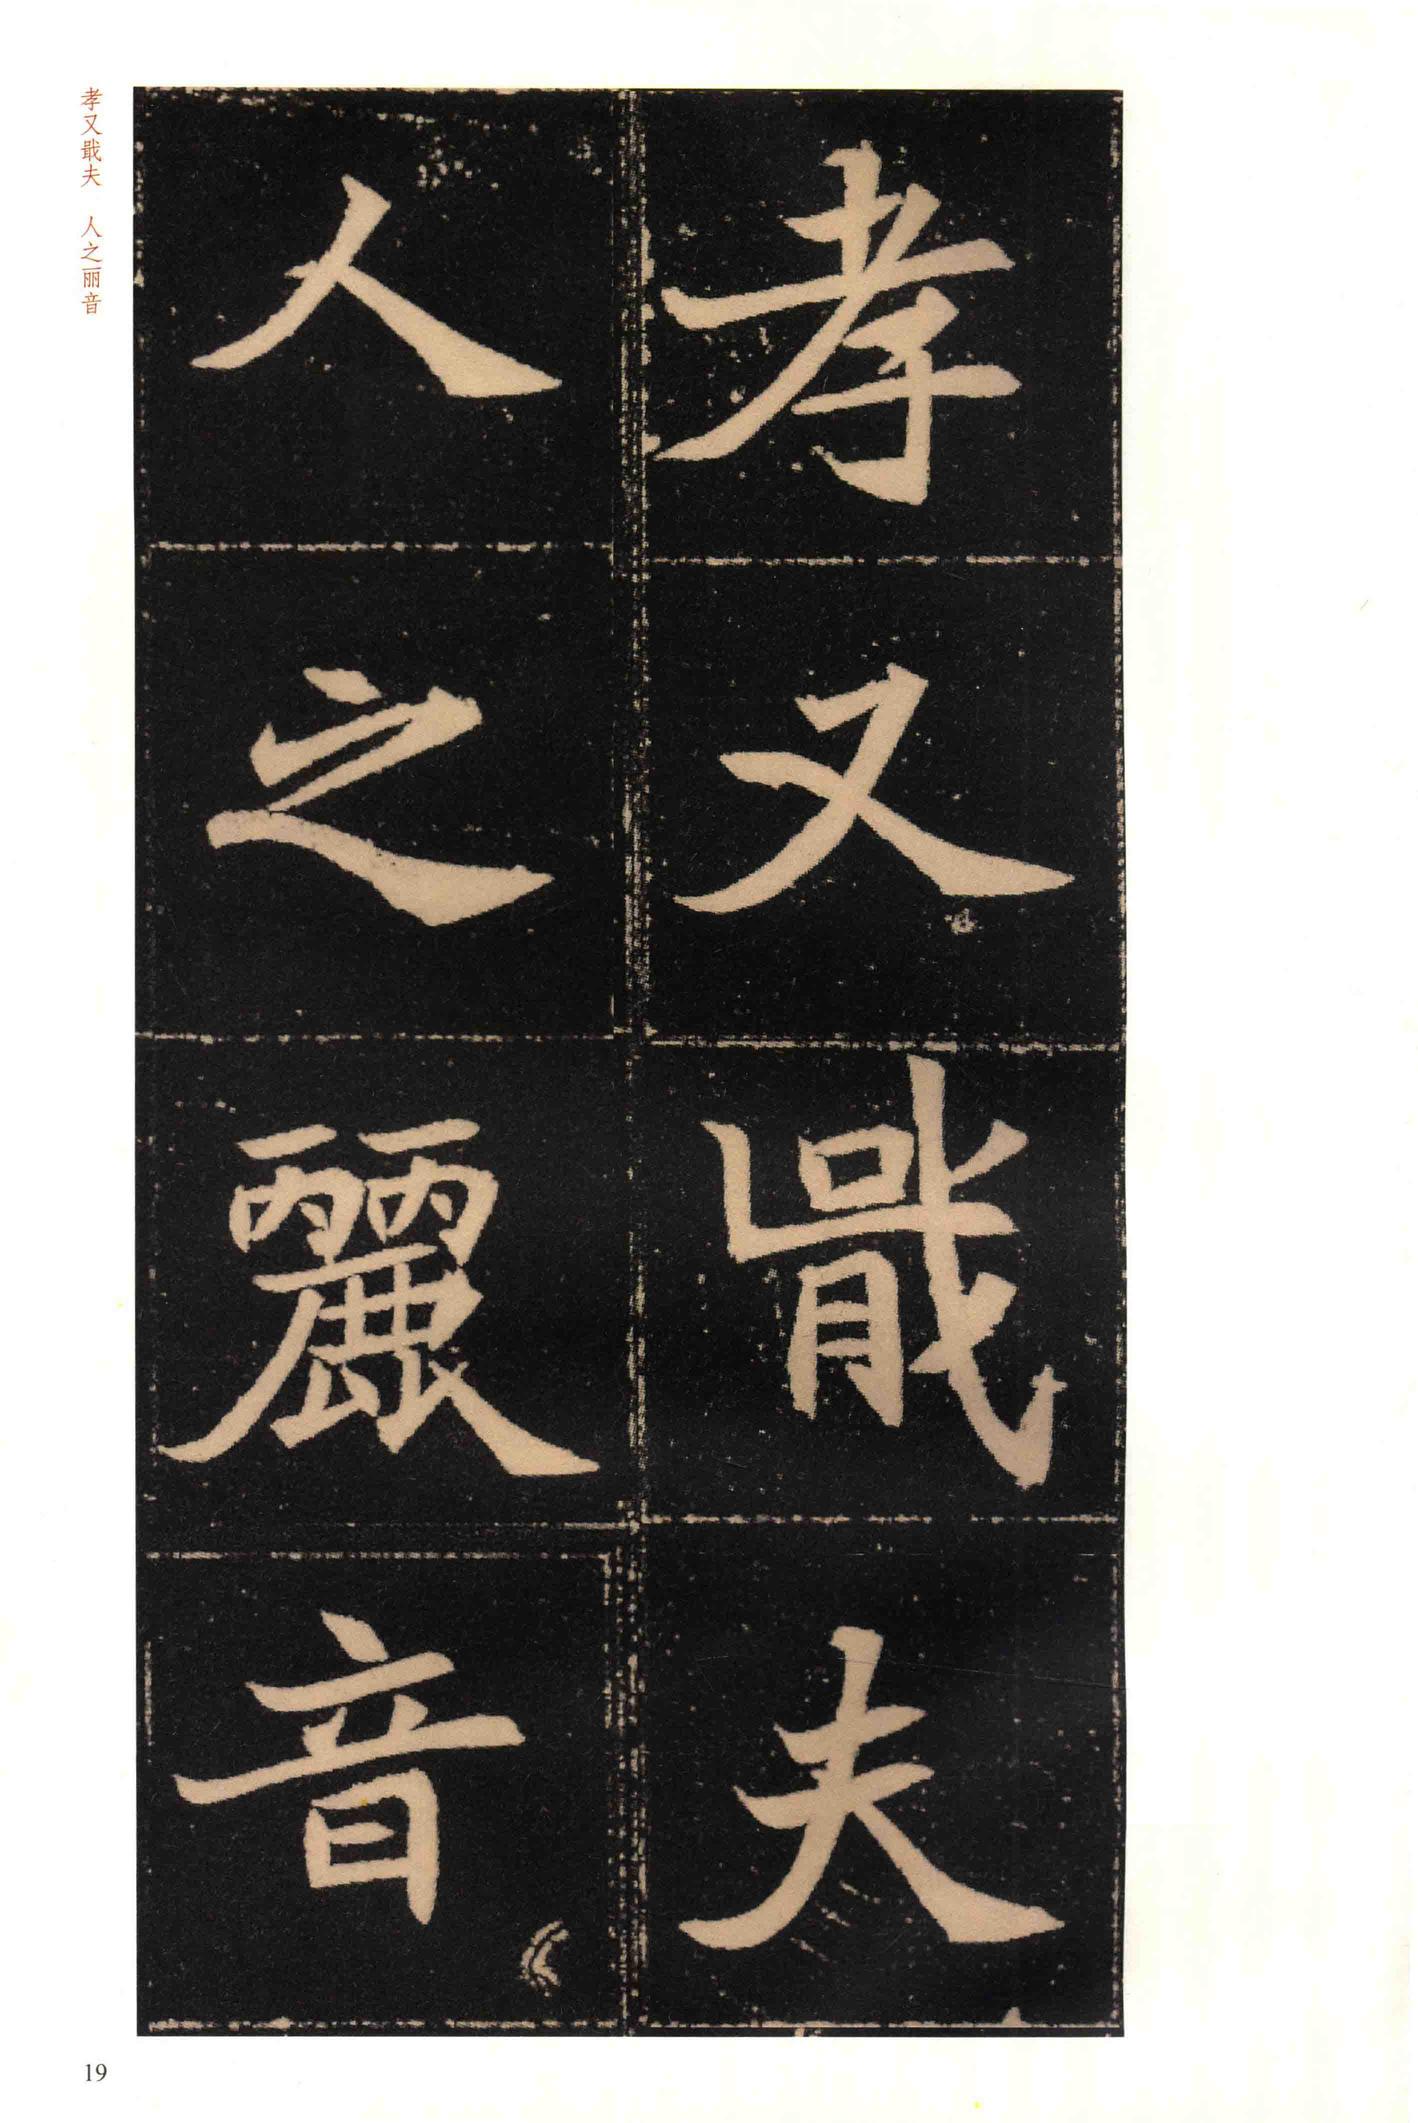 孝又戢夫
人之麗音
孝又戢夫　人之丽音
19